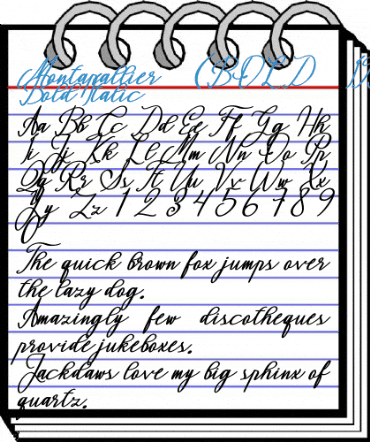 Montapallier (BOLD
Bold Italic
Aa Bb Cc Dd Ee Ff Gg Hh
Ii Jj Kk Ll Mm Nn Oo Pp
Qq Rr Ss Tt Uu Vv Ww Xx
Yy Zz 1 2 3 4 5 6 7 8 9
0
The quick brown fox jumps over
the lazy dog.
Amazingly few discotheques
provide jukeboxes.
Jackdaws love my big sphinx of
quartz.